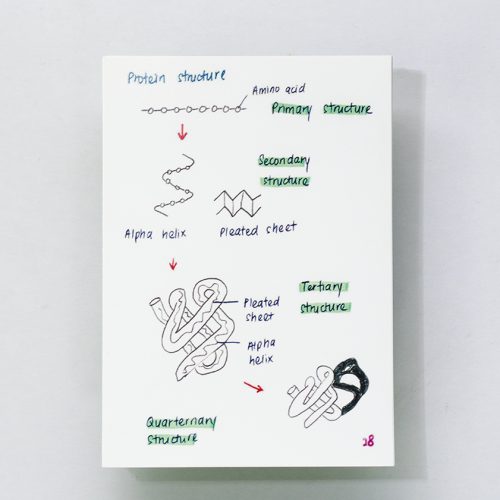 Protein structure
Amino acid
Primary structure
Secondary
structure
Alpha helix
Pleated sheet
Tertiary
structure
Pleated
sheet
Alpha
helix
Quarternary
structure
28